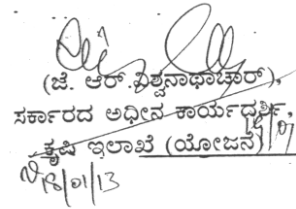 (ಜೆ. ಆರ್. ವಿಶ್ವನಾಥಾಚಾರ್),
ಸರ್ಕಾರದ ಅಧೀನ ಕಾರ್ಯದರ್ಶಿ,
ಕೃಷಿ ಇಲಾಖೆ (ಯೋಜನೆ)
18/01/13